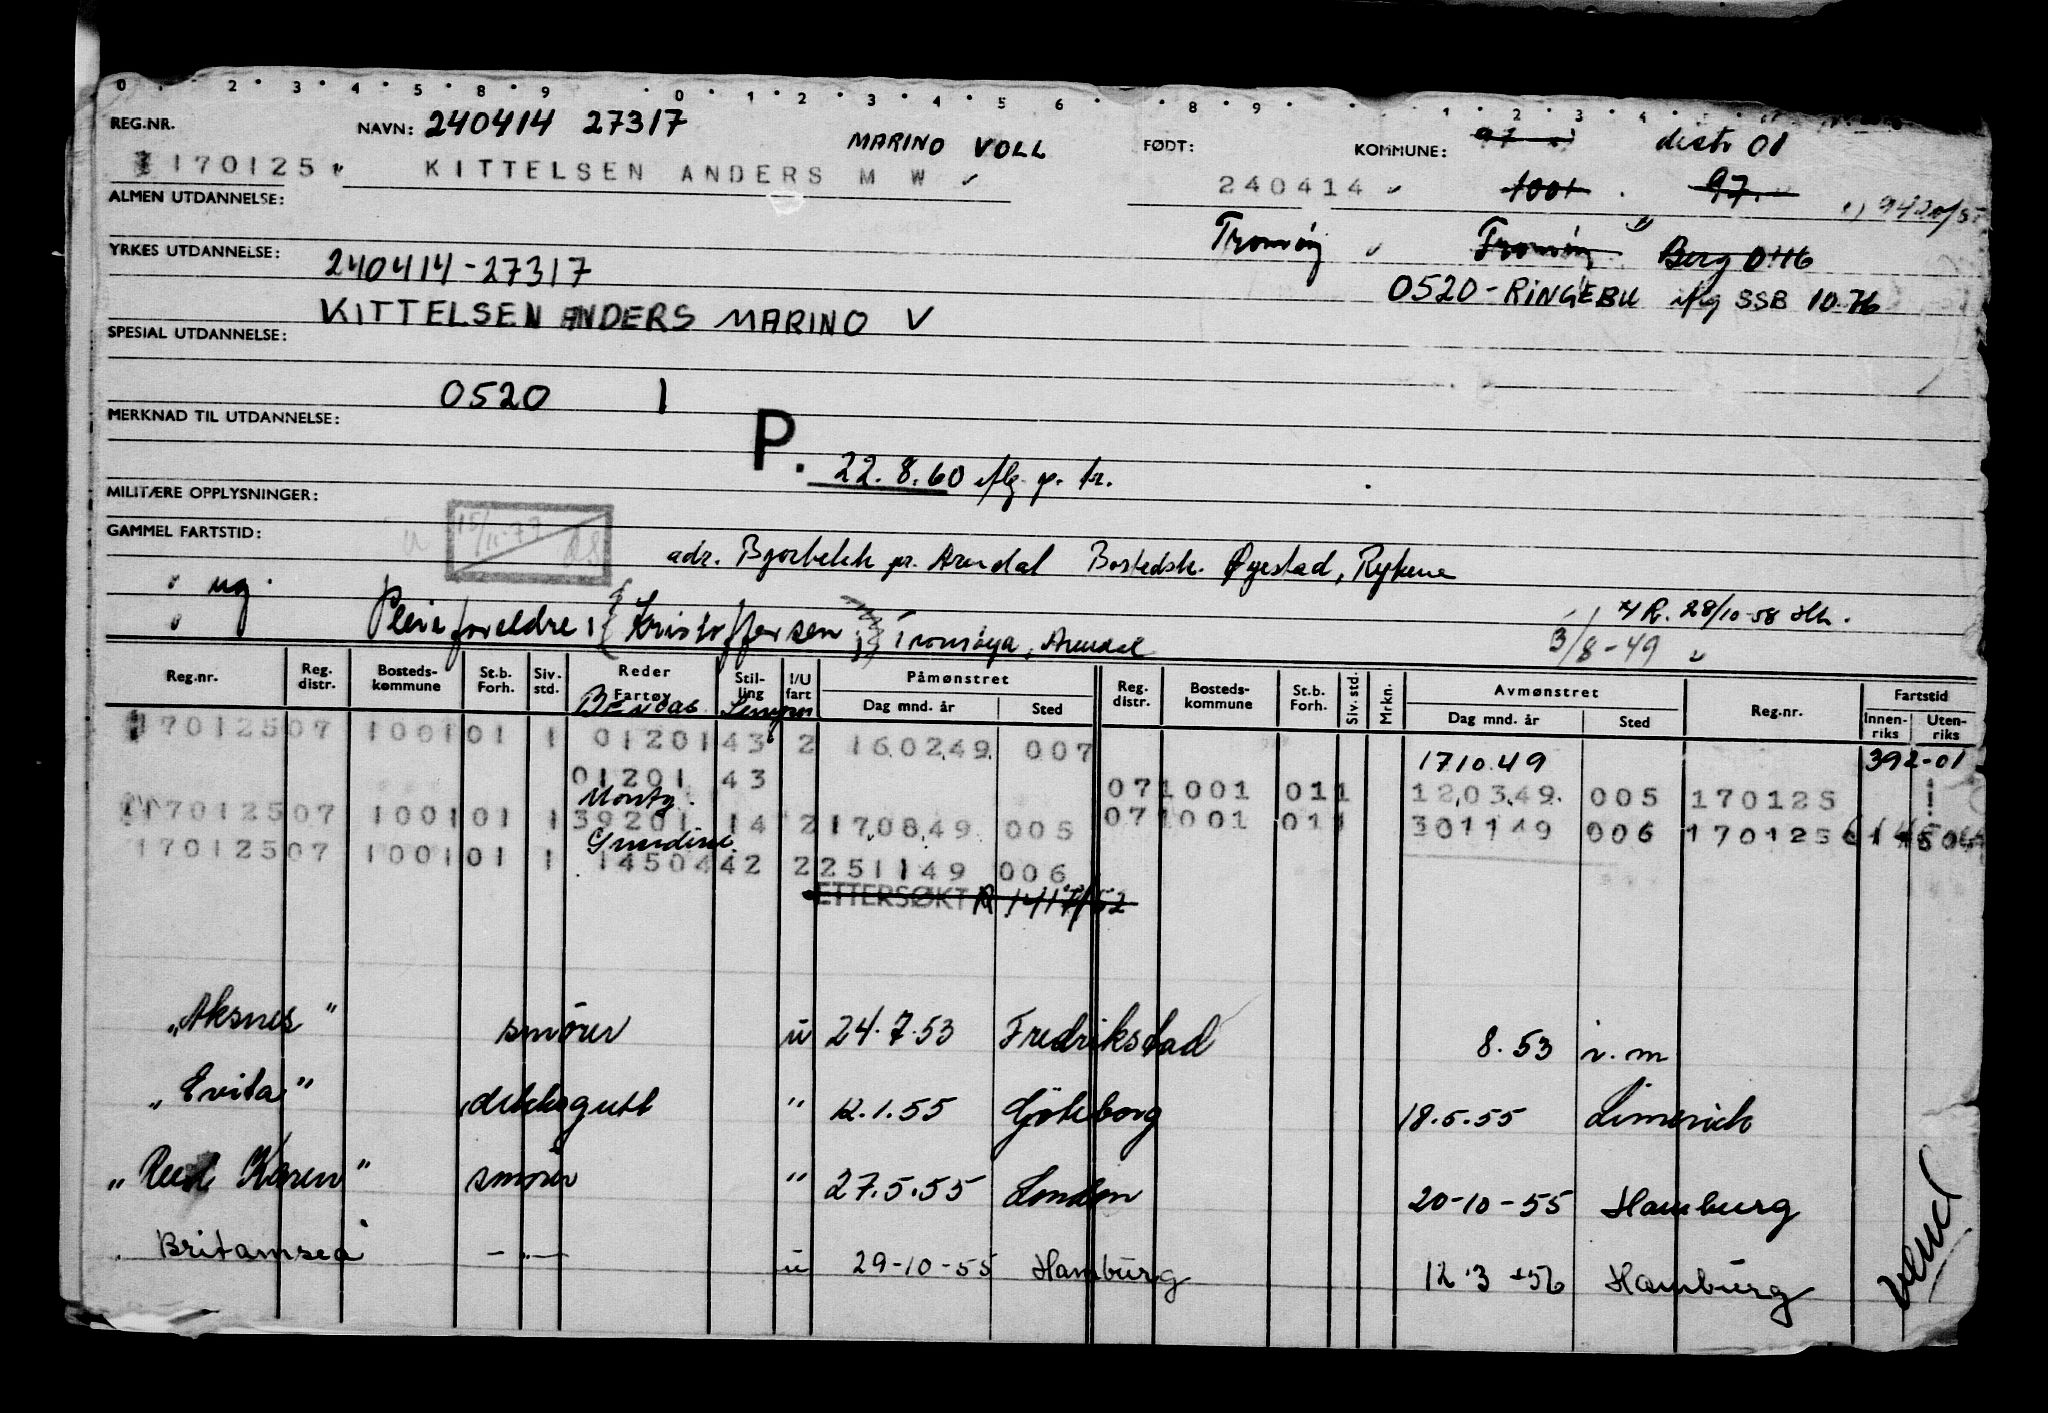 0 . 2 . 3 . 4 . 5 . 8 . 9 . 0 . 1 . 2 . 3 . 4 . 5 6 . 8 . 9 . 1 . 2 . 3 . 4
REG.NR. NAVN: 240414 27317 MARINO VOLL FØDT: KOMMUNE: 97 distr 01
170125 KITTELSEN ANDERS M W 240414 1001 97.
ALMEN UTDANNELSE: 9420/55
Tromøy Tromøy Berg 0116
YRKES UTDANNELSE: 240414-27317
0520-RINGEBU iflg SSB 10.76
KITTELSEN ANDERS MARINO V
SPESIAL UTDANNELSE:
0520 1
MERKNAD TIL UTDANNELSE:
P. 22.8.60 iflg. p. kr.
MILITÆRE OPPLYSNINGER:
GAMMEL FARTSTID:
15/11-77
adr. Bjorbekk pr. Arendal Bostedsk. Øyestad, Rykene
" ug.
Pleieforeldre: Kristoffersen, Tromøya, Arendal
R. 28/10-58
3/8-49 "
Reg.nr. Reg. distr. Bosteds-kommune St.b. Forh. Siv. std. Reder Fartøy Stil-ling I/U fart Påmønstret Dag mnd. år Sted Reg. distr. Bosteds-kommune St.b. Forh. Siv. std. Mrkn. Avmønstret Dag mnd. år Sted Reg.nr. Fartstid Innen-riks Uten-riks
170125 07 1001 01 1 01201 43 2 16.02.49. 007 1710.49 392-01
01201 43 071001 011 12.03.49. 005 170125
170125 07 1001 01 1 39201 14 2 17.08.49. 005 071001 011 301149 006 170125
170125 07 1001 01 1 14504 42 2 251149 006
ETTERSØKT R 1417/52
"Aksnes" smører u 24.7.53 Fredrikstad 8.53
"Evita" dekksgutt " 12.1.55 Göteborg 18.5.55 Limerick
"Karen" smører " 27.5.55 London 20-10-55 Hamburg
Britamsea -"- u 29-10-55 Hamburg 12.3-56 Hamburg
vend